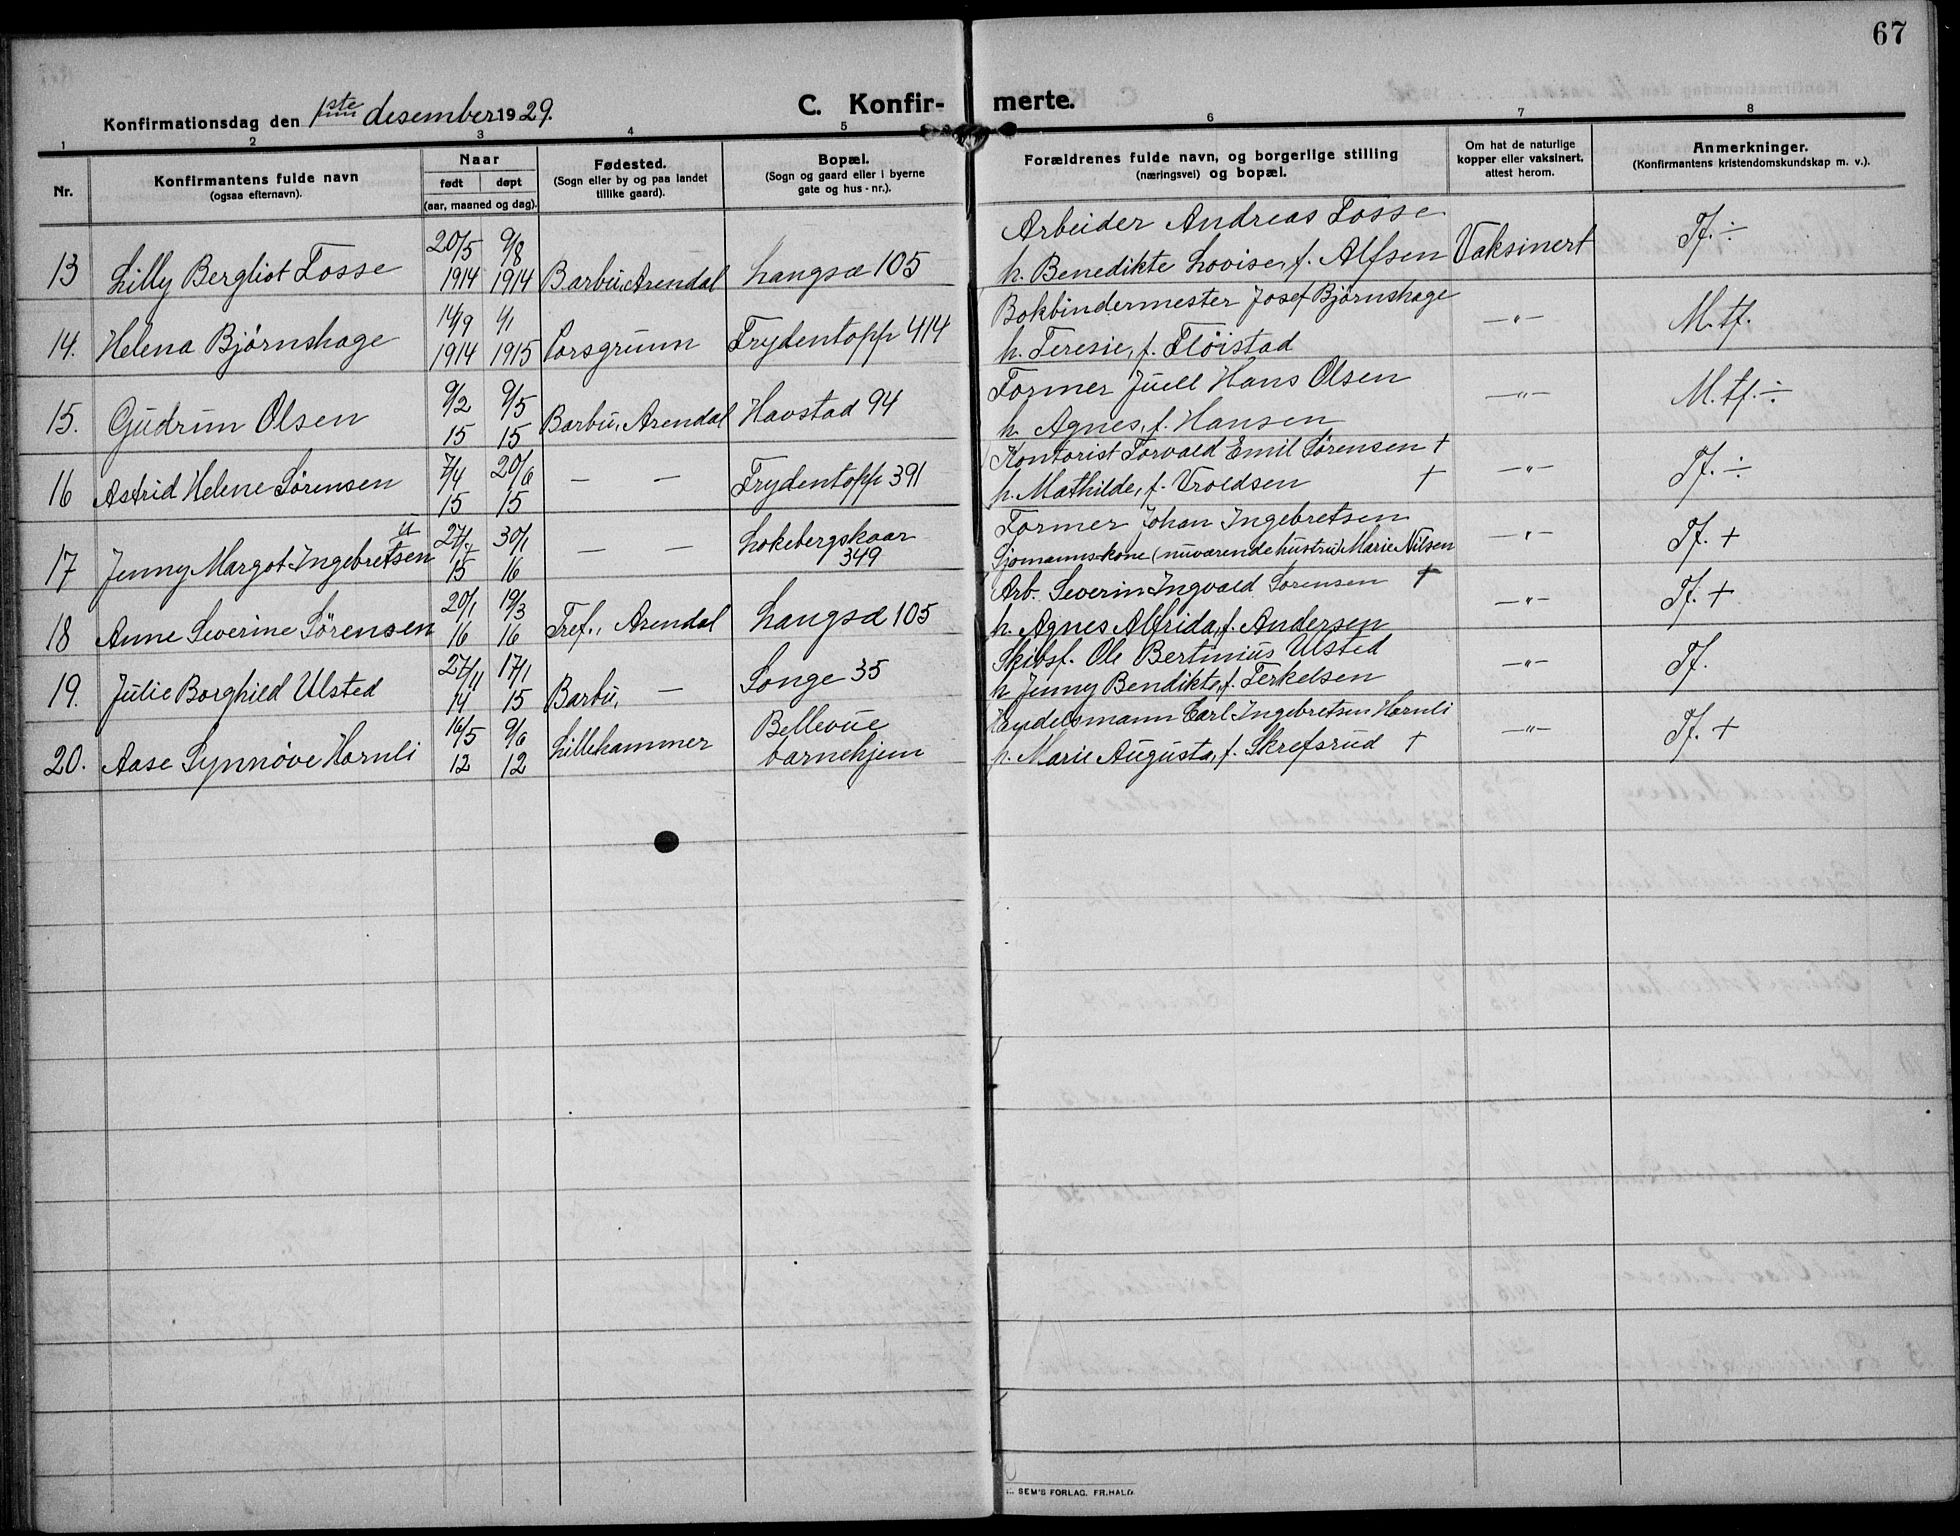 67
Konfirmationsdag den 1ste desember 1929.
C. Konfir- merte.
1 2 3 4 5 6 7 8
Nr.
Konfirmantens fulde navn
(ogsaa efternavn).
Naar
født døpt
(aar, maaned og dag).
Fødested.
(Sogn eller by og paa landet
tillike gaard).
Bopæl.
(Sogn og gaard eller i byerne
gate og hus-nr.).
Forældrenes fulde navn, og borgerlige stilling
(næringsvei) og bopæl.
Om hat de naturlige
kopper eller vaksinert,
attest herom.
Anmerkninger.
(Konfirmantens kristendomskundskap m. v.).
20/5 9/8 Arbeider Andreas Fosse
13 Lilly Bergliot Fosse 1914 1914 Barbu, Arendal Langsæ 105 h. Benedikte Lovise, f. Alfsen Vaksinert Tf. ÷
14/9 4/1 Bokbindermester Josef Bjørnshage
14. Helena Bjørnshage 1914 1915 Porsgrunn Frydentopp 414 h. Teresie, f. Fløistad —"— M.tf.
9/2 9/5 Former Juell Hans Olsen
15. Gudrun Olsen 15 15 Barbu, Arendal Havstad 94 h. Agnes, f. Hansen —"— M.tf. ÷
7/4 20/6 Kontorist Torvald Emil Sørensen +
16 Astrid Helene Sørensen 15 15 — — Frydentopp 391 h. Mathilde, f. Vroldsen + —"— Tf. ÷
u 27/7 30/1 Lokebergskaar Former Johan Ingebretsen
17 Jenny Margot Ingebretsen 15 16 — — 349 Sjømannskone (nuværende hustru) Marie Nilsen —"— Tf. +
20/1 19/3 Arb. Severin Ingvald Sørensen +
18 Anne Severine Sørensen 16 16 Tref., Arendal Langsæ 105 h. Agnes Alfrida, f. Andersen —"— Tf. +
27/11 17/1 Skibsf. Ole Bertinius Ulsted
19. Julie Borghild Ulsted 14 15 Barbu, — Songe 35 h. Jenny Bendikte, f. Terkelsen —"— Tf.
16/5 9/6 Bellevue Handelsmann Carl Ingebretsen Hornli
20. Aase Synnøve Hornli 12 12 Lillehammer barnehjem h. Marie Augusta, f. Skrefsrud + —"— Tf. +
SEM'S FORLAG. FR.HALD.